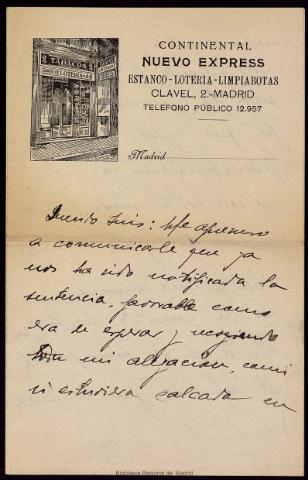 CONTINENTAL
NUEVO EXPRESS
ESTANCO - LOTERIA - LIMPIABOTAS
CLAVEL, 2.-MADRID
TELEFONO PÚBLICO 12.957
2 TABACOS 2
LOTERIA
Madrid
Querido Luis: Me apresuro
a comunicarle que ya
nos ha sido notificada la
sentencia, favorable como
era de esperar y recogiendo
toda mi alegación, como
si estuviera calcada en
Biblioteca Regional de Madrid